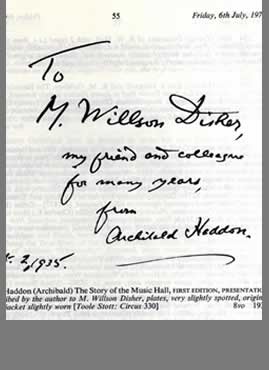 55 Friday, 6th July, 197
To
M. Willson Disher,
my friend and colleague
for many years,
from
Archibald Haddon.
t. 2, 1935.
Haddon (Archibald) The Story of the Music Hall, FIRST EDITION, PRESENTATIO
ibed by the author to M. Willson Disher, plates, very slightly spotted, origin
jacket slightly worn [Toole Stott: Circus 330] 8vo 193